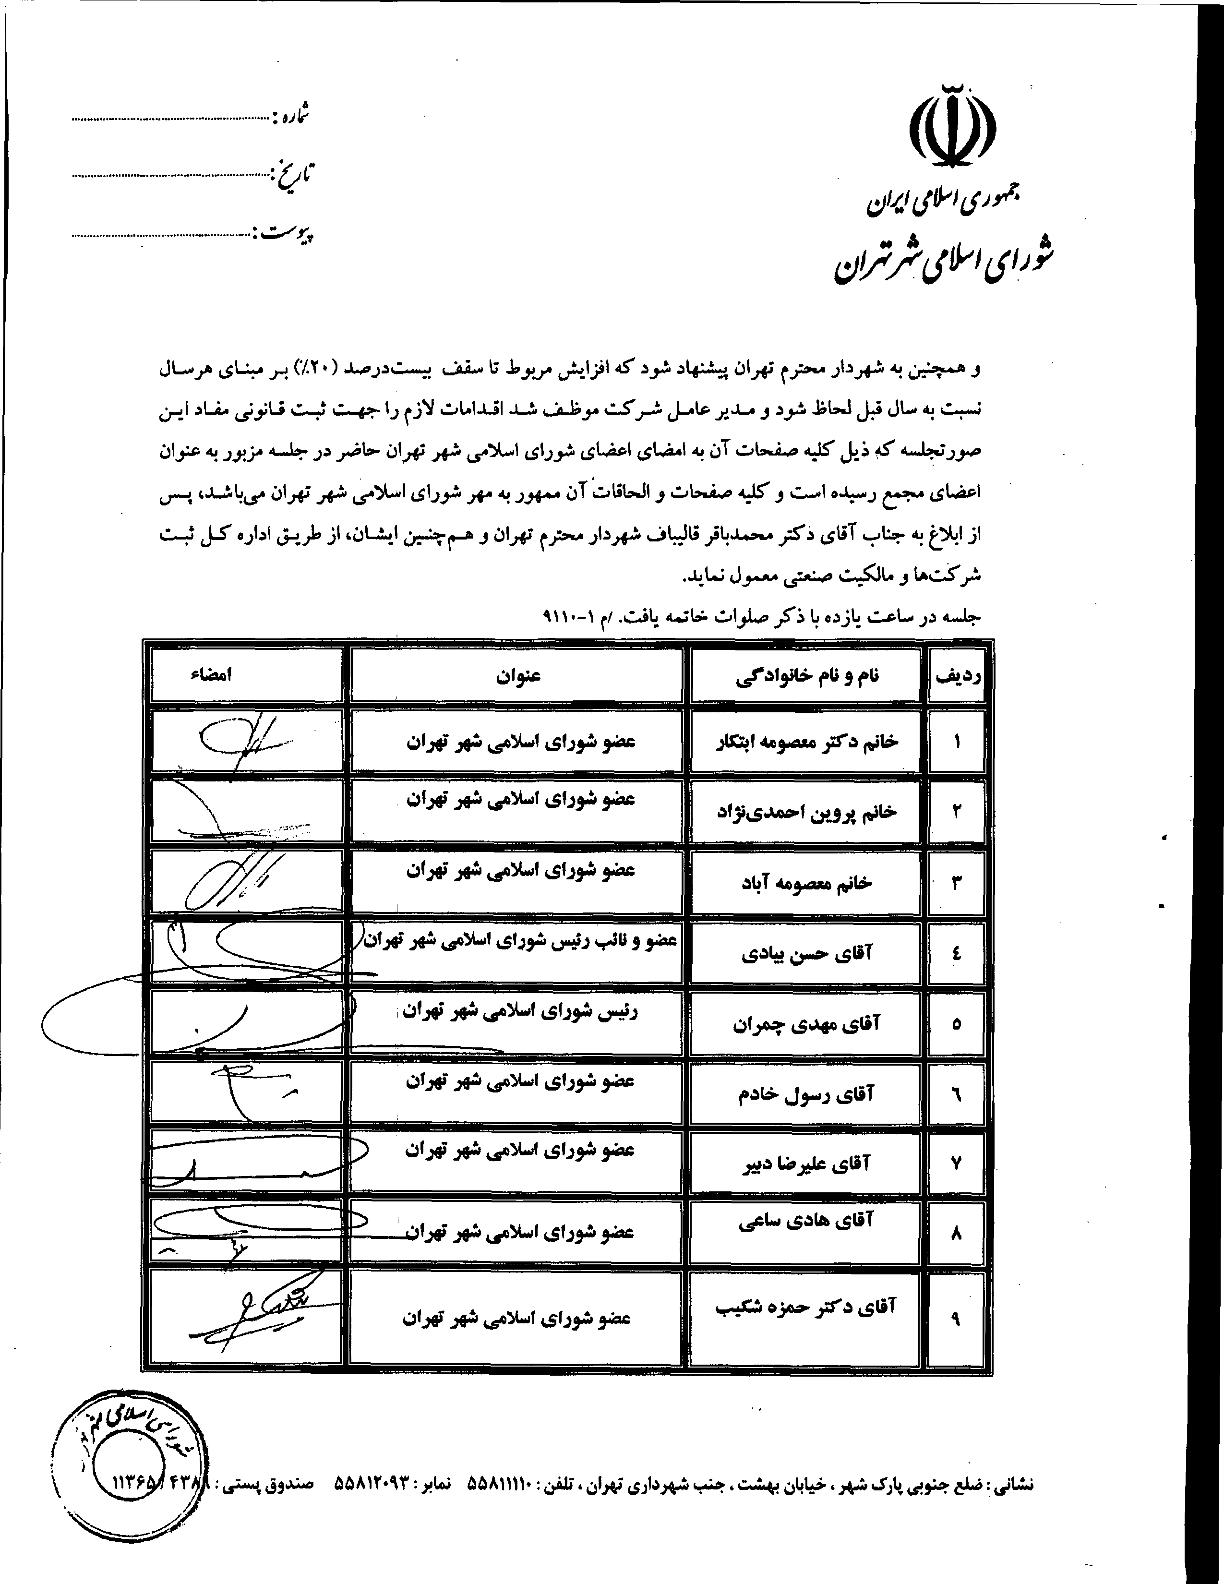 جمهوری اسلامی ایران
شورای اسلامی شهر تهران
شماره :
تاریخ :
پیوست :
و همچنین به شهردار محترم تهران پیشنهاد شود که افزایش مربوط تا سقف بیست‌درصد (۲۰٪) بر مبنای هرسال
نسبت به سال قبل لحاظ شود و مدیر عامل شرکت موظف شد اقدامات لازم را جهت ثبت قانونی مفاد این
صورتجلسه که ذیل کلیه صفحات آن به امضای اعضای شورای اسلامی شهر تهران حاضر در جلسه مزبور به عنوان
اعضای مجمع رسیده است و کلیه صفحات و الحاقات آن ممهور به مهر شورای اسلامی شهر تهران می‌باشد، پس
از ابلاغ به جناب آقای دکتر محمدباقر قالیباف شهردار محترم تهران و هم‌چنین ایشان، از طریق اداره کل ثبت
شرکت‌ها و مالکیت صنعتی معمول نماید.
جلسه در ساعت یازده با ذکر صلوات خاتمه یافت. /م ۱-۹۱۱۰
ردیف نام و نام خانوادگی عنوان امضاء
۱ خانم دکتر معصومه ابتکار عضو شورای اسلامی شهر تهران
۲ خانم پروین احمدی‌نژاد عضو شورای اسلامی شهر تهران
۳ خانم معصومه آباد عضو شورای اسلامی شهر تهران
٤ آقای حسن بیادی عضو و نائب رئیس شورای اسلامی شهر تهران
۵ آقای مهدی چمران رئیس شورای اسلامی شهر تهران
٦ آقای رسول خادم عضو شورای اسلامی شهر تهران
۷ آقای علیرضا دبیر عضو شورای اسلامی شهر تهران
۸ آقای هادی ساعی عضو شورای اسلامی شهر تهران
۹ آقای دکتر حمزه شکیب عضو شورای اسلامی شهر تهران
شورای اسلامی شهر
نشانی : ضلع جنوبی پارک شهر ، خیابان بهشت ، جنب شهرداری تهران ، تلفن : ۵۵۸۱۱۱۱۰ نمابر : ۵۵۸۱۲۰۹۳ صندوق پستی :